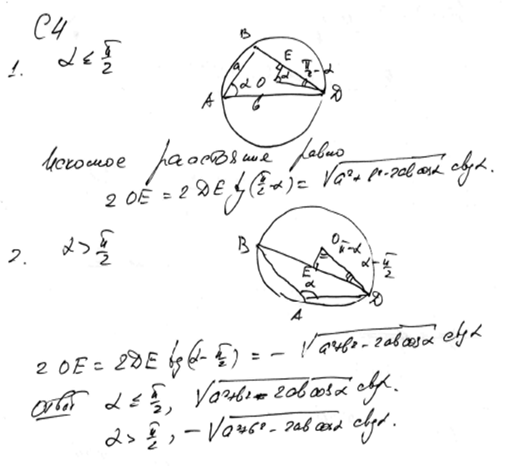 C4
1. α ≤ π/2
B
E
a
α
O
α
π/2 - α
A
b
D
Искомое расстояние равно
2 OE = 2 DE tg(π/2 - α) = √(a² + b² - 2ab cos α) ctg α.
2. α > π/2
B
O
π - α
E
α - π/2
α
A
D
2 OE = 2DE tg(α - π/2) = - √(a² + b² - 2ab cos α) ctg α
Ответ α ≤ π/2, √(a² + b² - 2ab cos α) ctg α.
α > π/2, - √(a² + b² - 2ab cos α) ctg α.